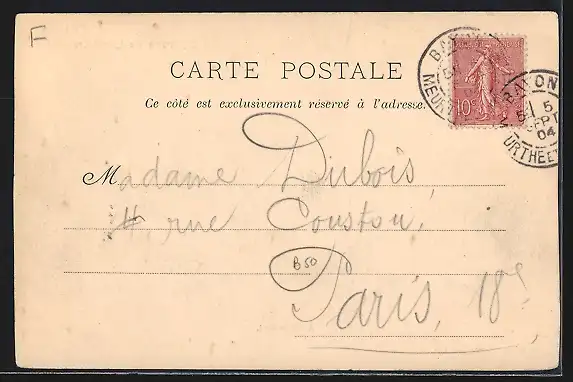 F
CARTE POSTALE
Ce côté est exclusivement réservé à l'adresse.
10c
BAYON
5
SEPT
04
MEURTHE ET
Madame Dubois,
4, rue Coustou,
B50
Paris, 18e